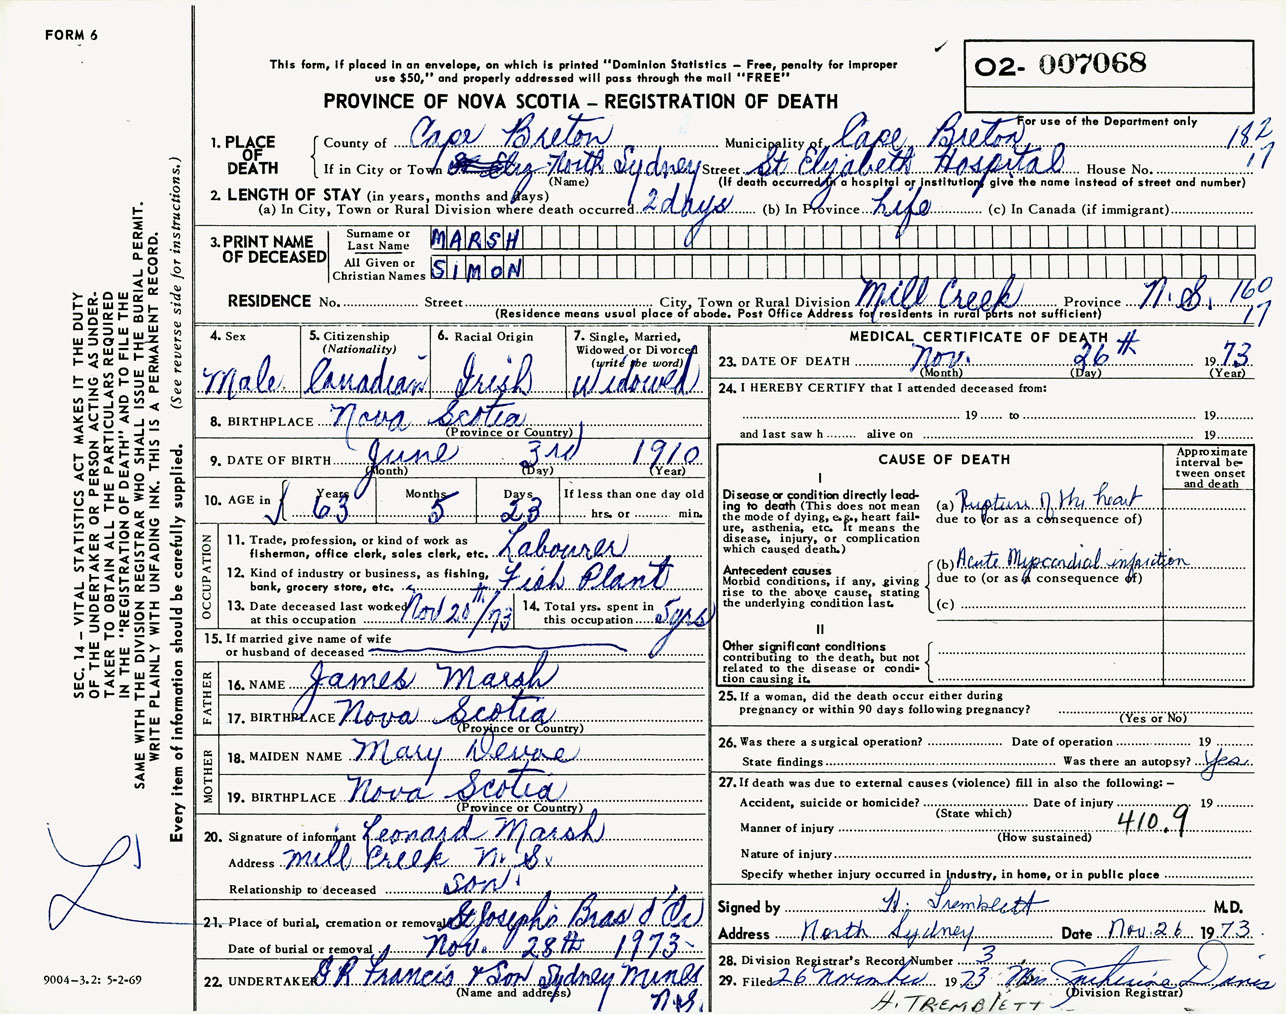 FORM 6
This form, if placed in an envelope, on which is printed "Dominion Statistics – Free, penalty for improper
use $50," and properly addressed will pass through the mail "FREE"
PROVINCE OF NOVA SCOTIA – REGISTRATION OF DEATH
02- 007068
For use of the Department only
1. PLACE OF DEATH
County of Cape Breton Municipality of Cape Breton 182
If in City or Town North Sydney Street St Elizabeth Hospital House No. 17
(Name) (If death occurred in a hospital or institution, give the name instead of street and number)
2. LENGTH OF STAY (in years, months and days)
(a) In City, Town or Rural Division where death occurred 2 days (b) In Province Life (c) In Canada (if immigrant)
3. PRINT NAME OF DECEASED
Surname or Last Name MARSH
All Given or Christian Names SIMON
RESIDENCE No. Street City, Town or Rural Division Mill Creek Province N.S. 160
(Residence means usual place of abode. Post Office Address for residents in rural parts not sufficient) 17
4. Sex
Male
5. Citizenship
(Nationality)
Canadian
6. Racial Origin
Irish
7. Single, Married,
Widowed or Divorced
(write the word)
Widowed
8. BIRTHPLACE Nova Scotia
(Province or Country)
9. DATE OF BIRTH June 3rd 1910
(Month) (Day) (Year)
10. AGE in Years Months Days If less than one day old
63 5 23 hrs. or min.
OCCUPATION
11. Trade, profession, or kind of work as
fisherman, office clerk, sales clerk, etc. Labourer
12. Kind of industry or business, as fishing,
bank, grocery store, etc. Fish Plant
13. Date deceased last worked
at this occupation Nov 20th/73
14. Total yrs. spent in
this occupation 5yrs
15. If married give name of wife
or husband of deceased
FATHER
16. NAME James Marsh
17. BIRTHPLACE Nova Scotia
(Province or Country)
MOTHER
18. MAIDEN NAME Mary Devoe
19. BIRTHPLACE Nova Scotia
(Province or Country)
20. Signature of informant Leonard Marsh
Address Mill Creek N. S.
Relationship to deceased son.
21. Place of burial, cremation or removal St Joseph's Bras d'Or
Date of burial or removal Nov. 28th 1973
22. UNDERTAKER G R Francis & Son Sydney Mines
(Name and address) N.S.
MEDICAL CERTIFICATE OF DEATH
23. DATE OF DEATH Nov. 26th 1973
(Month) (Day) (Year)
24. I HEREBY CERTIFY that I attended deceased from:
19 to 19
and last saw h alive on 19
CAUSE OF DEATH
Approximate
interval be-
tween onset
and death
I
Disease or condition directly lead-
ing to death (This does not
mean the mode of dying, e.g., heart fail-
ure, asthenia, etc. It means the
disease, injury, or complication
which caused death.)
(a) Rupture of the heart
due to (or as a consequence of)
Antecedent causes
Morbid conditions, if any, giving
rise to the above cause, stating
the underlying condition last.
(b) Acute Myocardial infarction
due to (or as a consequence of)
(c)
II
Other significant conditions
contributing to the death, but not
related to the disease or condi-
tion causing it.
25. If a woman, did the death occur either during
pregnancy or within 90 days following pregnancy?
(Yes or No)
26. Was there a surgical operation? Date of operation 19
State findings Was there an autopsy? Yes
27. If death was due to external causes (violence) fill in also the following: –
Accident, suicide or homicide? Date of injury 19
(State which)
Manner of injury 410.9
(How sustained)
Nature of injury
Specify whether injury occurred in industry, in home, or in public place
Signed by H. Tremblett M.D.
Address North Sydney Date Nov. 26 1973.
28. Division Registrar's Record Number 3
29. Filed 26 November 1973 Mrs Davis
(Division Registrar)
H. TREMBLETT
SEC. 14 – VITAL STATISTICS ACT MAKES IT THE DUTY
OF THE UNDERTAKER OR PERSON ACTING AS UNDER-
TAKER TO OBTAIN ALL THE PARTICULARS REQUIRED
IN THE "REGISTRATION OF DEATH" AND TO FILE THE
SAME WITH THE DIVISION REGISTRAR WHO SHALL ISSUE THE BURIAL PERMIT.
WRITE PLAINLY WITH UNFADING INK. THIS IS A PERMANENT RECORD.
Every item of information should be carefully supplied. (See reverse side for instructions.)
9004–3.2: 5-2-69